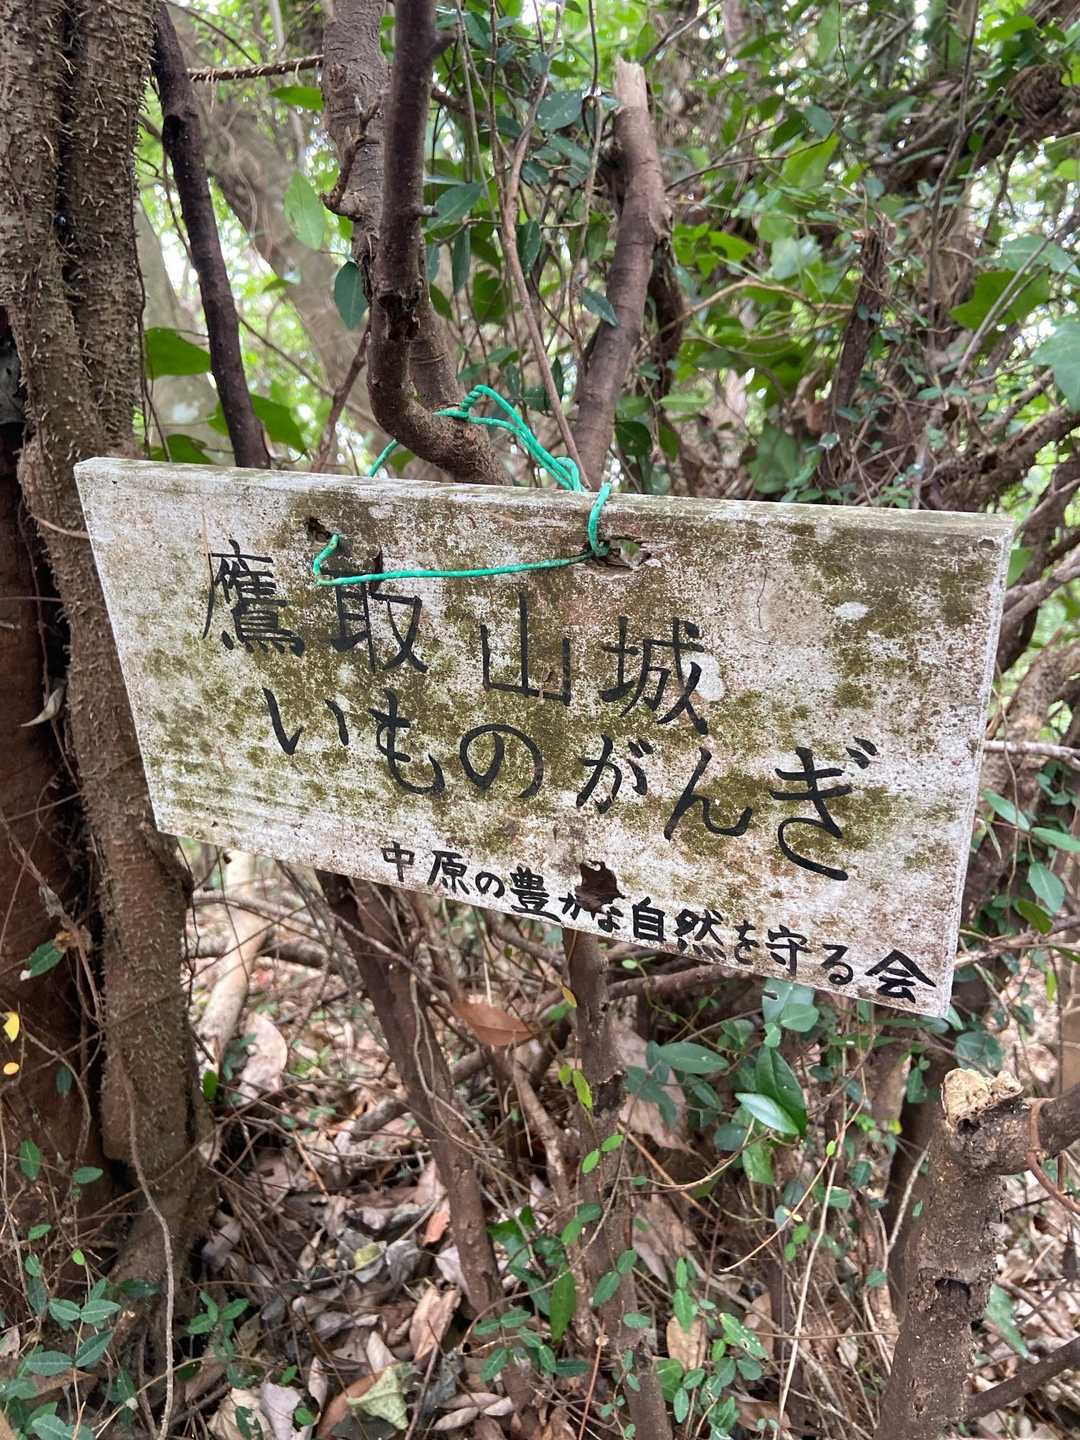 鷹取山城
いものがんぎ
中原の豊かな自然を守る会